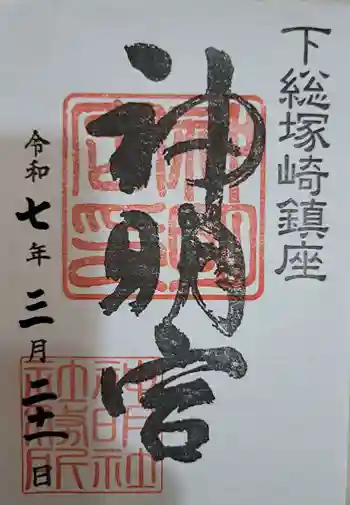 下総塚崎鎮座
神明宮
令和七年三月二十一日
神明社
社務所